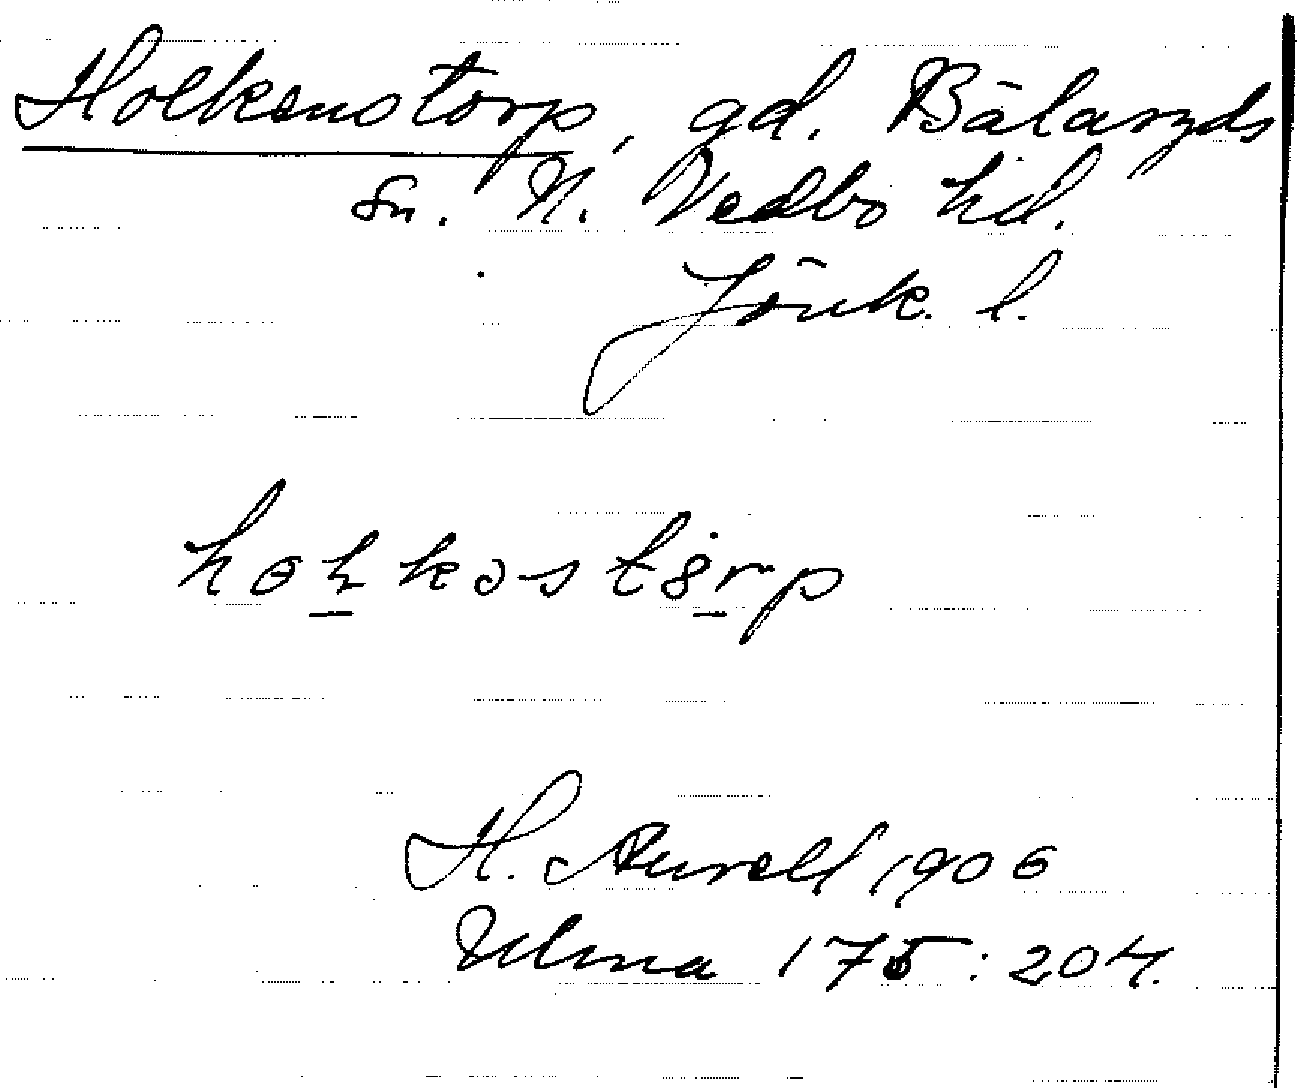 Holkenstorp, gd. Bälaryds
sn. N. Vedbo hd.
Jönk. l.
H. Aurell 1906
Ulma 175:204.